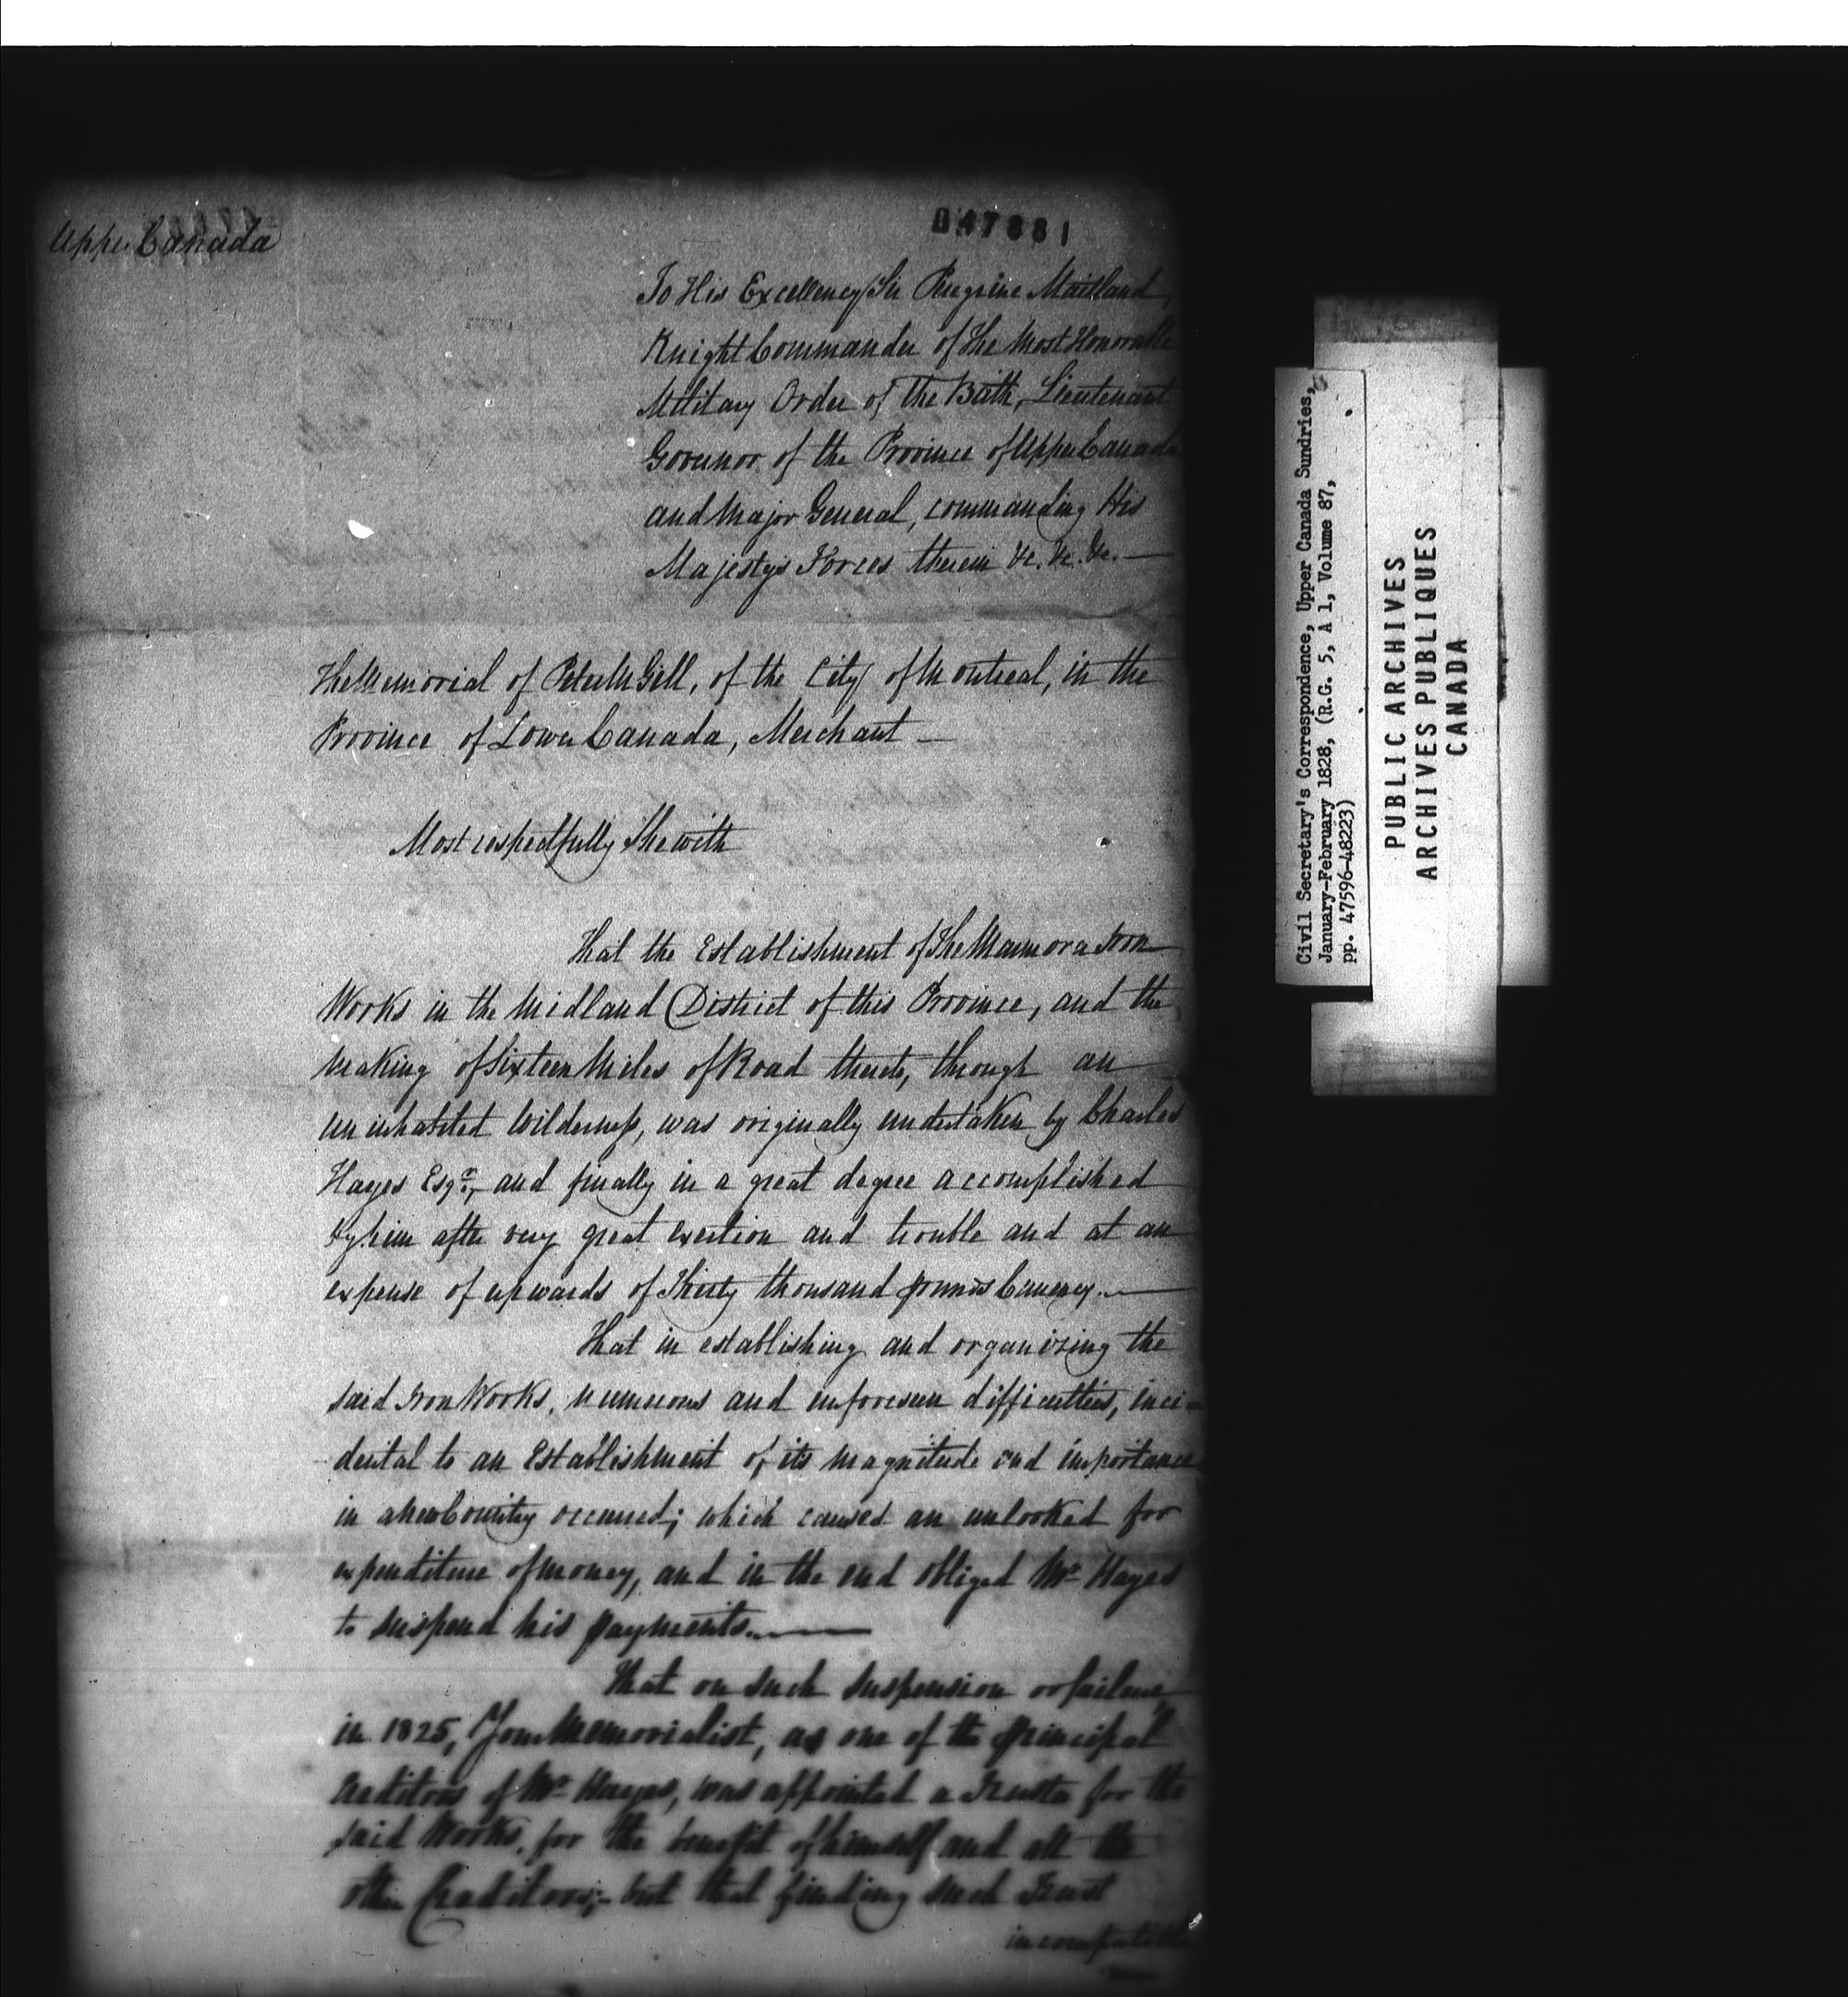 Upper Canada
047881
To His Excellency Sir Peregrine Maitland,
Knight Commander of the Most Honorable
Military Order of the Bath, Lieutenant
Governor of the Province of Upper Canada
and Major General, commanding His
Majestys Forces therein &c. &c. &c. —
The Memorial of Peter McGill, of the City of Montreal, in the
Province of Lower Canada, Merchant —
Most respectfully Sheweth
That the Establishment of The Marmora Iron
Works in the Midland District of this Province, and the
making of Sixteen Miles of Road thereto, through an
uninhabited Wilderness, was originally undertaken by Charles
Hayes Esqr., and finally in a great degree accomplished
by him after very great exertion and trouble and at an
expense of upwards of Thirty thousand pounds Currency. —
That in establishing and organizing the
said Iron Works, numerous and unforeseen difficulties, inci-
dental to an Establishment of its magnitude and importance
in a new Country occurred; which caused an unlooked for
expenditure of money, and in the end obliged Mr Hayes
to suspend his payments. —
That on such suspension or failure
in 1825, Your Memorialist, as one of the principal
Creditors of Mr Hayes, was appointed a Trustee for the
said Works, for the benefit of himself and all the
other Creditors;- but that finding such Trust
incompatible
Civil Secretary's Correspondence, Upper Canada Sundries,
January-February 1828, (R.G. 5, A 1, Volume 87,
pp. 47596-48223)
PUBLIC ARCHIVES
ARCHIVES PUBLIQUES
CANADA